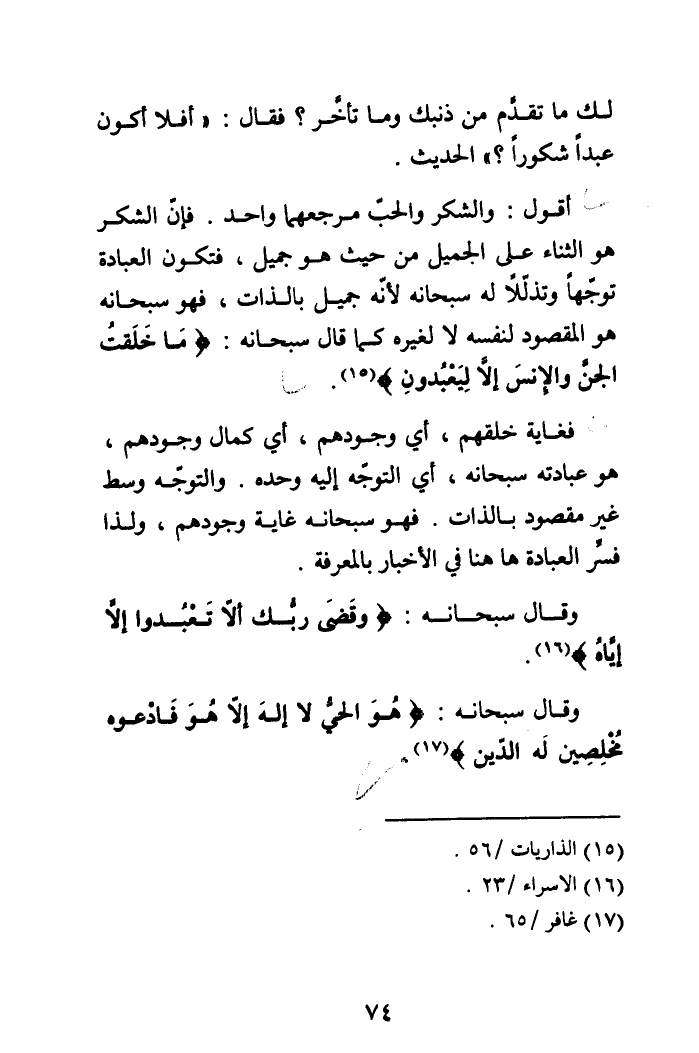 لـك ما تقـدَّم من ذنبك ومـا تأخَّـر ؟ فقـال : « أفـلا أكـون
عبداً شكوراً ؟» الحديث .
أقـول : والشكر والحبّ مـرجعهما واحـد . فإنّ الشكـر
هو الثناء عـلى الجميل من حيث هـو جميل ، فتكـون العبادة
توجّهاً وتذلّلًا له سبحانه لأنّه جميـل بـالـذات ، فهو سبحـانه
هو المقصود لنفسه لا لغيره كـما قال سبحـانه : ﴿ مَـا خَلَقتُ
الجنَّ والإنسَ إلَّا لِيَعْبُدونِ ﴾(١٥) .
فغـاية خلقهم ، أي وجـودهم ، أي كمال وجـودهم ،
هو عبادته سبحانه ، أي التوجّه إليه وحده . والتوجّـه وسط
غير مقصود بـالذات . فهـو سبحانـه غايـة وجودهم ، ولـذا
فسرَّ العبادة ها هنا في الأخبار بالمعرفة .
وقـال سبحـانـه : ﴿ وقَضَى ربُّـك ألاّ تَـعْبُـدوا إلَّا
إيَّاهُ ﴾(١٦) .
وقـال سبحانـه : ﴿ هُـوَ الحيُّ لا إلـهَ إلاّ هُـوَ فَـادْعـوه
مُخْلِصِين لَه الدّين ﴾(١٧) .
(١٥) الذاريات /٥٦ .
(١٦) الاسراء /٢٣ .
(١٧) غافر /٦٥ .
٧٤